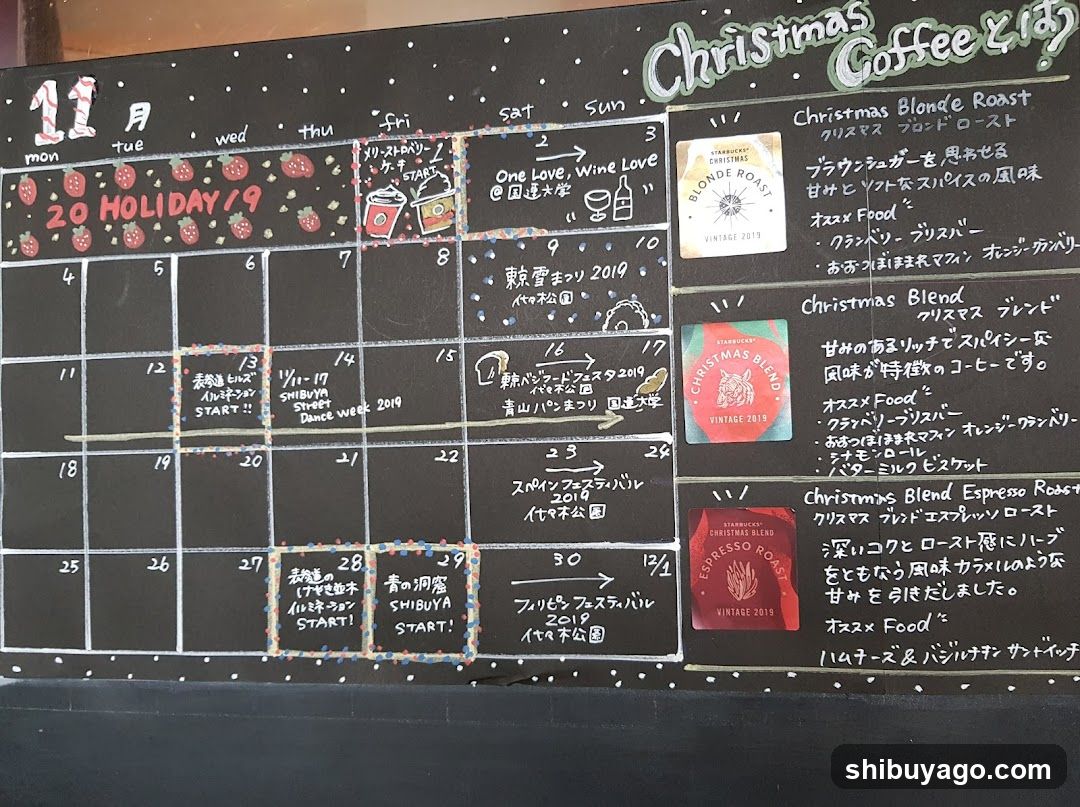 11月
mon tue wed thu fri sat sun
20 HOLIDAY/9
メリーストロベリー
ケーキ
START
1
2 3
One Love, Wine Love
@国連大学
4 5 6 7 8 9 10
東京雪まつり 2019
代々木公園
11 12 13 14 15 16 17
表参道ヒルズ
イルミネーション
START!!
11/11-17
SHIBUYA
Street
Dance week 2019
東京ベジフードフェスタ2019
代々木公園
青山パンまつり 国連大学
18 19 20 21 22 23 24
スペインフェスティバル
2019
代々木公園
25 26 27 28 29 30 12/1
表参道の
けやき並木
イルミネーション
START!
青の洞窟
SHIBUYA
START!
フィリピンフェスティバル
2019
代々木公園
Christmas
Coffeeとは?
Christmas Blonde Roast
クリスマス ブロンドロースト
STARBUCKS®
CHRISTMAS
BLONDE ROAST
VINTAGE 2019
ブラウンシュガーを思わせる
甘みとソフトなスパイスの風味
オススメ Food
・クランベリーブリスバー
・おおつぼほまれマフィン オレンジークランベリー
Christmas Blend
クリスマス ブレンド
STARBUCKS®
CHRISTMAS BLEND
VINTAGE 2019
甘みのあるリッチでスパイシーな
風味が特徴のコーヒーです。
オススメ Food
・クランベリーブリスバー
・おおつぼほまれマフィン オレンジークランベリー
・シナモンロール
・バターミルクビスケット
Christmas Blend Espresso Roast
クリスマス ブレンドエスプレッソロースト
STARBUCKS®
CHRISTMAS BLEND
ESPRESSO ROAST
VINTAGE 2019
深いコクとロースト感にハーブ
をともなう風味カラメルのような
甘みを引きだしました。
オススメ Food
ハムチーズ&バジルチキンサンドイッチ
shibuyago.com